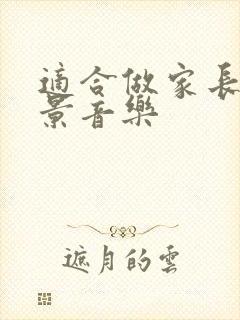 適合做家長
景音樂
遮月的雲